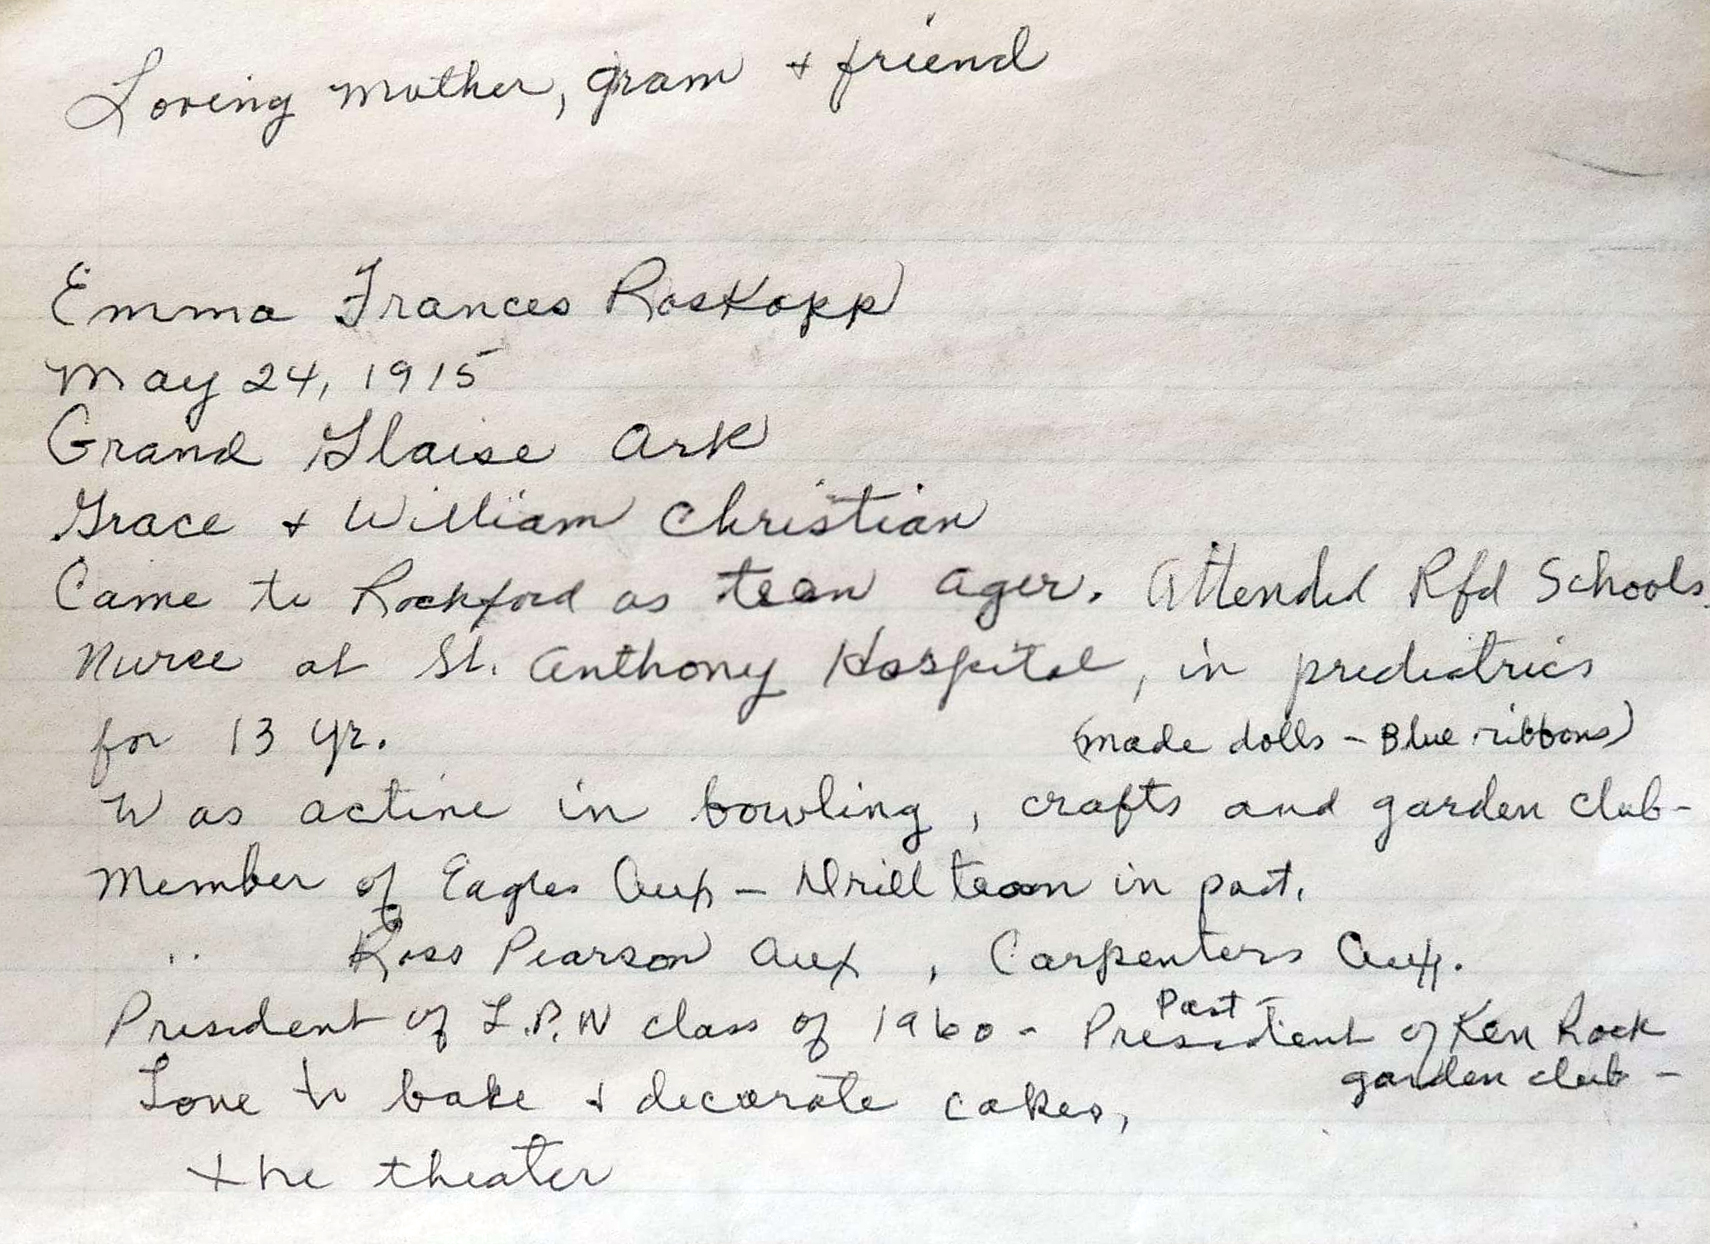 Loving mother, gram + friend
Emma Frances Roskopp
May 24, 1915
Grand Glaise Ark
Grace + William Christian
Came to Rockford as teen ager. Attended Rfd Schools.
Nurse at St. Anthony Hospital, in prediatrics
for 13 yr.
(made dolls - Blue ribbons)
Was active in bowling, crafts and garden club-
Member of Eagles Aux - Drill team in past.
" Ross Pearson Aux, Carpenters Aux.
Past
President of L.P.N class of 1960 - President of Ken Rock
garden club -
Love to bake + decorate cakes,
the theater